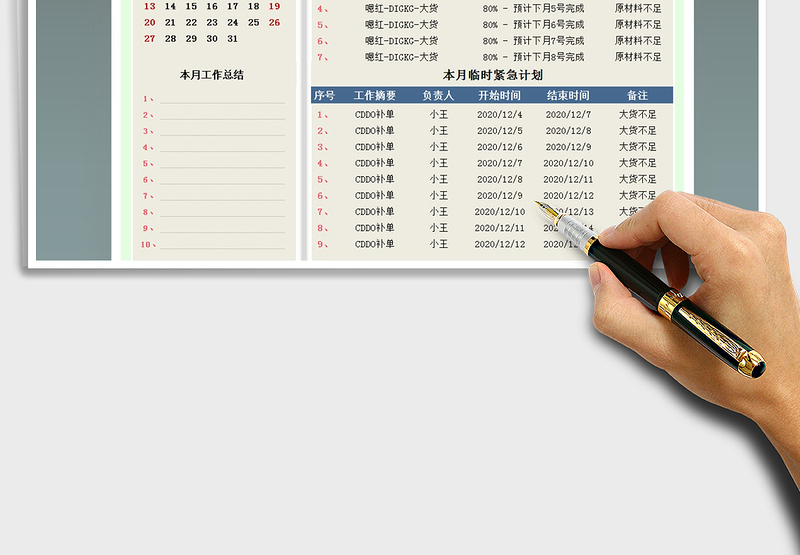 13 14 15 16 17 18 19
20 21 22 23 24 25 26
27 28 29 30 31
本月工作总结
1、
2、
3、
4、
5、
6、
7、
8、
9、
10、
4、 嗯红-DIGKG-大货 80% - 预计下月5号完成 原材料不足
5、 嗯红-DIGKG-大货 80% - 预计下月6号完成 原材料不足
6、 嗯红-DIGKG-大货 80% - 预计下月7号完成 原材料不足
7、 嗯红-DIGKG-大货 80% - 预计下月8号完成 原材料不足
本月临时紧急计划
序号 工作摘要 负责人 开始时间 结束时间 备注
1、 CDDO补单 小王 2020/12/4 2020/12/7 大货不足
2、 CDDO补单 小王 2020/12/5 2020/12/8 大货不足
3、 CDDO补单 小王 2020/12/6 2020/12/9 大货不足
4、 CDDO补单 小王 2020/12/7 2020/12/10 大货不足
5、 CDDO补单 小王 2020/12/8 2020/12/11 大货不足
6、 CDDO补单 小王 2020/12/9 2020/12/12 大货不足
7、 CDDO补单 小王 2020/12/10 /12/13 大货不
8、 CDDO补单 小王 2020/12/11
9、 CDDO补单 小王 2020/12/12